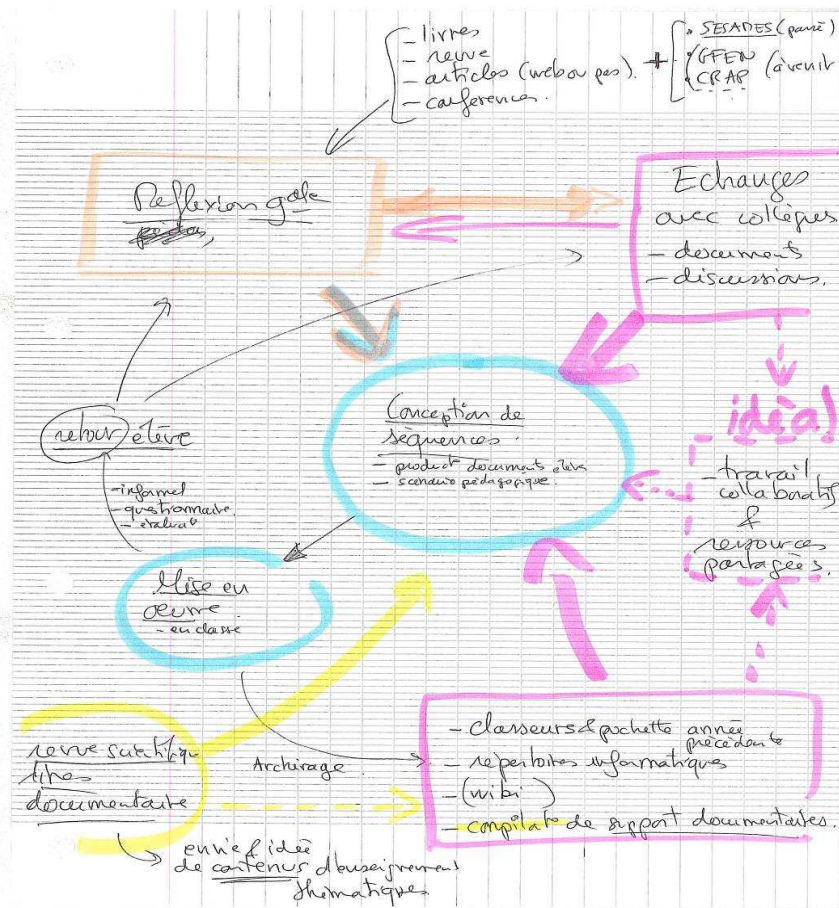 - livres
- revue
- articles (web ou pas).
- conferences.
+
• SESAMES (passé)
• GFEN
• CRAP (à venir
Reflexion gale
Echanges
avec collègues
- documents
- discussions.
retour élève
- informel
- questionnaire
- évaluat°
Conception de
séquences.
- product° documents élève
- scénario pédagogique
idéal
- travail
collaboratif
&
ressources
partagées.
Mise en
œuvre.
- en classe
revue scientifiq
livres
documentaire
Archivage
- classeurs & pochette année
précédente
- répertoires informatiques
- (wiki)
- compilat° de support documentaires.
envie & idée
de contenus d'enseignement
thématiques